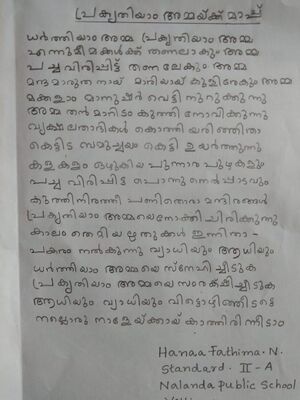 പ്രകൃതിയാം അമ്മയ്ക്ക് മാപ്പ്
ധർത്തിയാം അമ്മ പ്രകൃതിയാം അമ്മ
എന്നുമീ മക്കൾക്ക് തണലാകും അമ്മ
പച്ച വിരിപ്പിട്ട് തണലേകും അമ്മ
മന്ദമാരുതനായ് കുളിരേകും അമ്മ
മക്കളാം മാനുഷർ വെട്ടി നുറുക്കുന്നു
അമ്മ തൻ മാറിടം കുത്തി നോവിക്കുന്നു
വൃക്ഷലതാദികൾ കൊത്തിയരിഞ്ഞിതാ
കെട്ടിട സമുച്ചയം കെട്ടി ഉയർത്തുന്നു
കളകളം ഒഴുകിയ പുന്നാര പുഴകളും
പച്ച വിരിപ്പിട്ട പൊന്നുനെൽപ്പാടവും
കുത്തിനിരത്തി പണിതൊരാ മന്ദിരങ്ങൾ
പ്രകൃതിയാം അമ്മയെനോക്കി ചിരിക്കുന്നു
കാലം തെറ്റിയ ഋതുക്കൾ ഇന്നിതാ -
പകരം നൽകുന്നു വ്യാധിയും ആധിയും
ധർത്തിയാം അമ്മയെ സ്നേഹിച്ചീടുക
പ്രകൃതിയാം അമ്മയെ സംരക്ഷിച്ചീടുക
ആധിയും വ്യാധിയും വിട്ടൊഴിഞ്ഞീടട്ടെ
നല്ലൊരു നാളേയ്ക്കായ് കാത്തിരിന്നിടാം
Hanaa Fathima. N.
Standard. II - A
Nalanda Public School